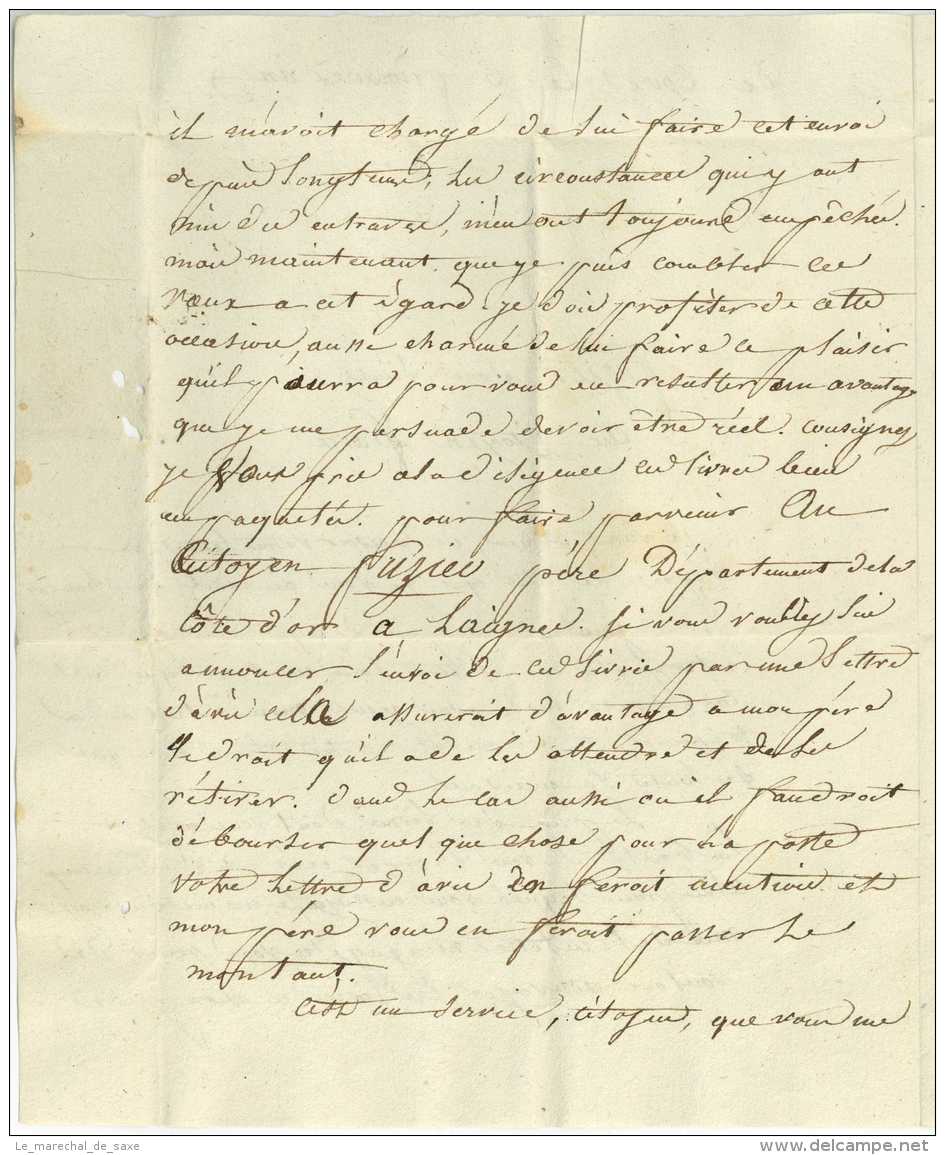 il m'avoit chargé de lui faire cet envoi
depuis longtems; les circonstances qui y ont
mis des entraves, m'en ont toujours empêché.
mais maintenant que je puis combler ses
vœux a cet égard je dois profiter de cette
occasion, aussi charmé de lui faire ce plaisir
qu'il pourra pour vous en resulter un avantage
que je me persuade devoir être réel. consignez
je vous prie a la diligence ces livres bien
empaquetés. pour faire parvenir Au
Citoyen fuzier père Département de la
côte d'or a Laignes. si vous voulez lui
annoncer l'envoi de ces livres par une lettre
d'avis cela assureroit d'avantage a mon pére
le droit qu'il a de les attendre et de les
rétirer. dans le cas aussi ou il faudroit
débourser quelque chose pour la poste
votre lettre d'avis en feroit mention et
mon pére vous en feroit passer le
montant.
C'est un service, citoyen, que vous me
Le_marechal_de_saxe
www.delcampe.net